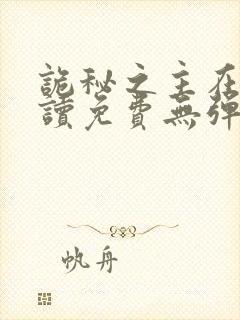 詭秘之主在
讀免費無彈
帆舟